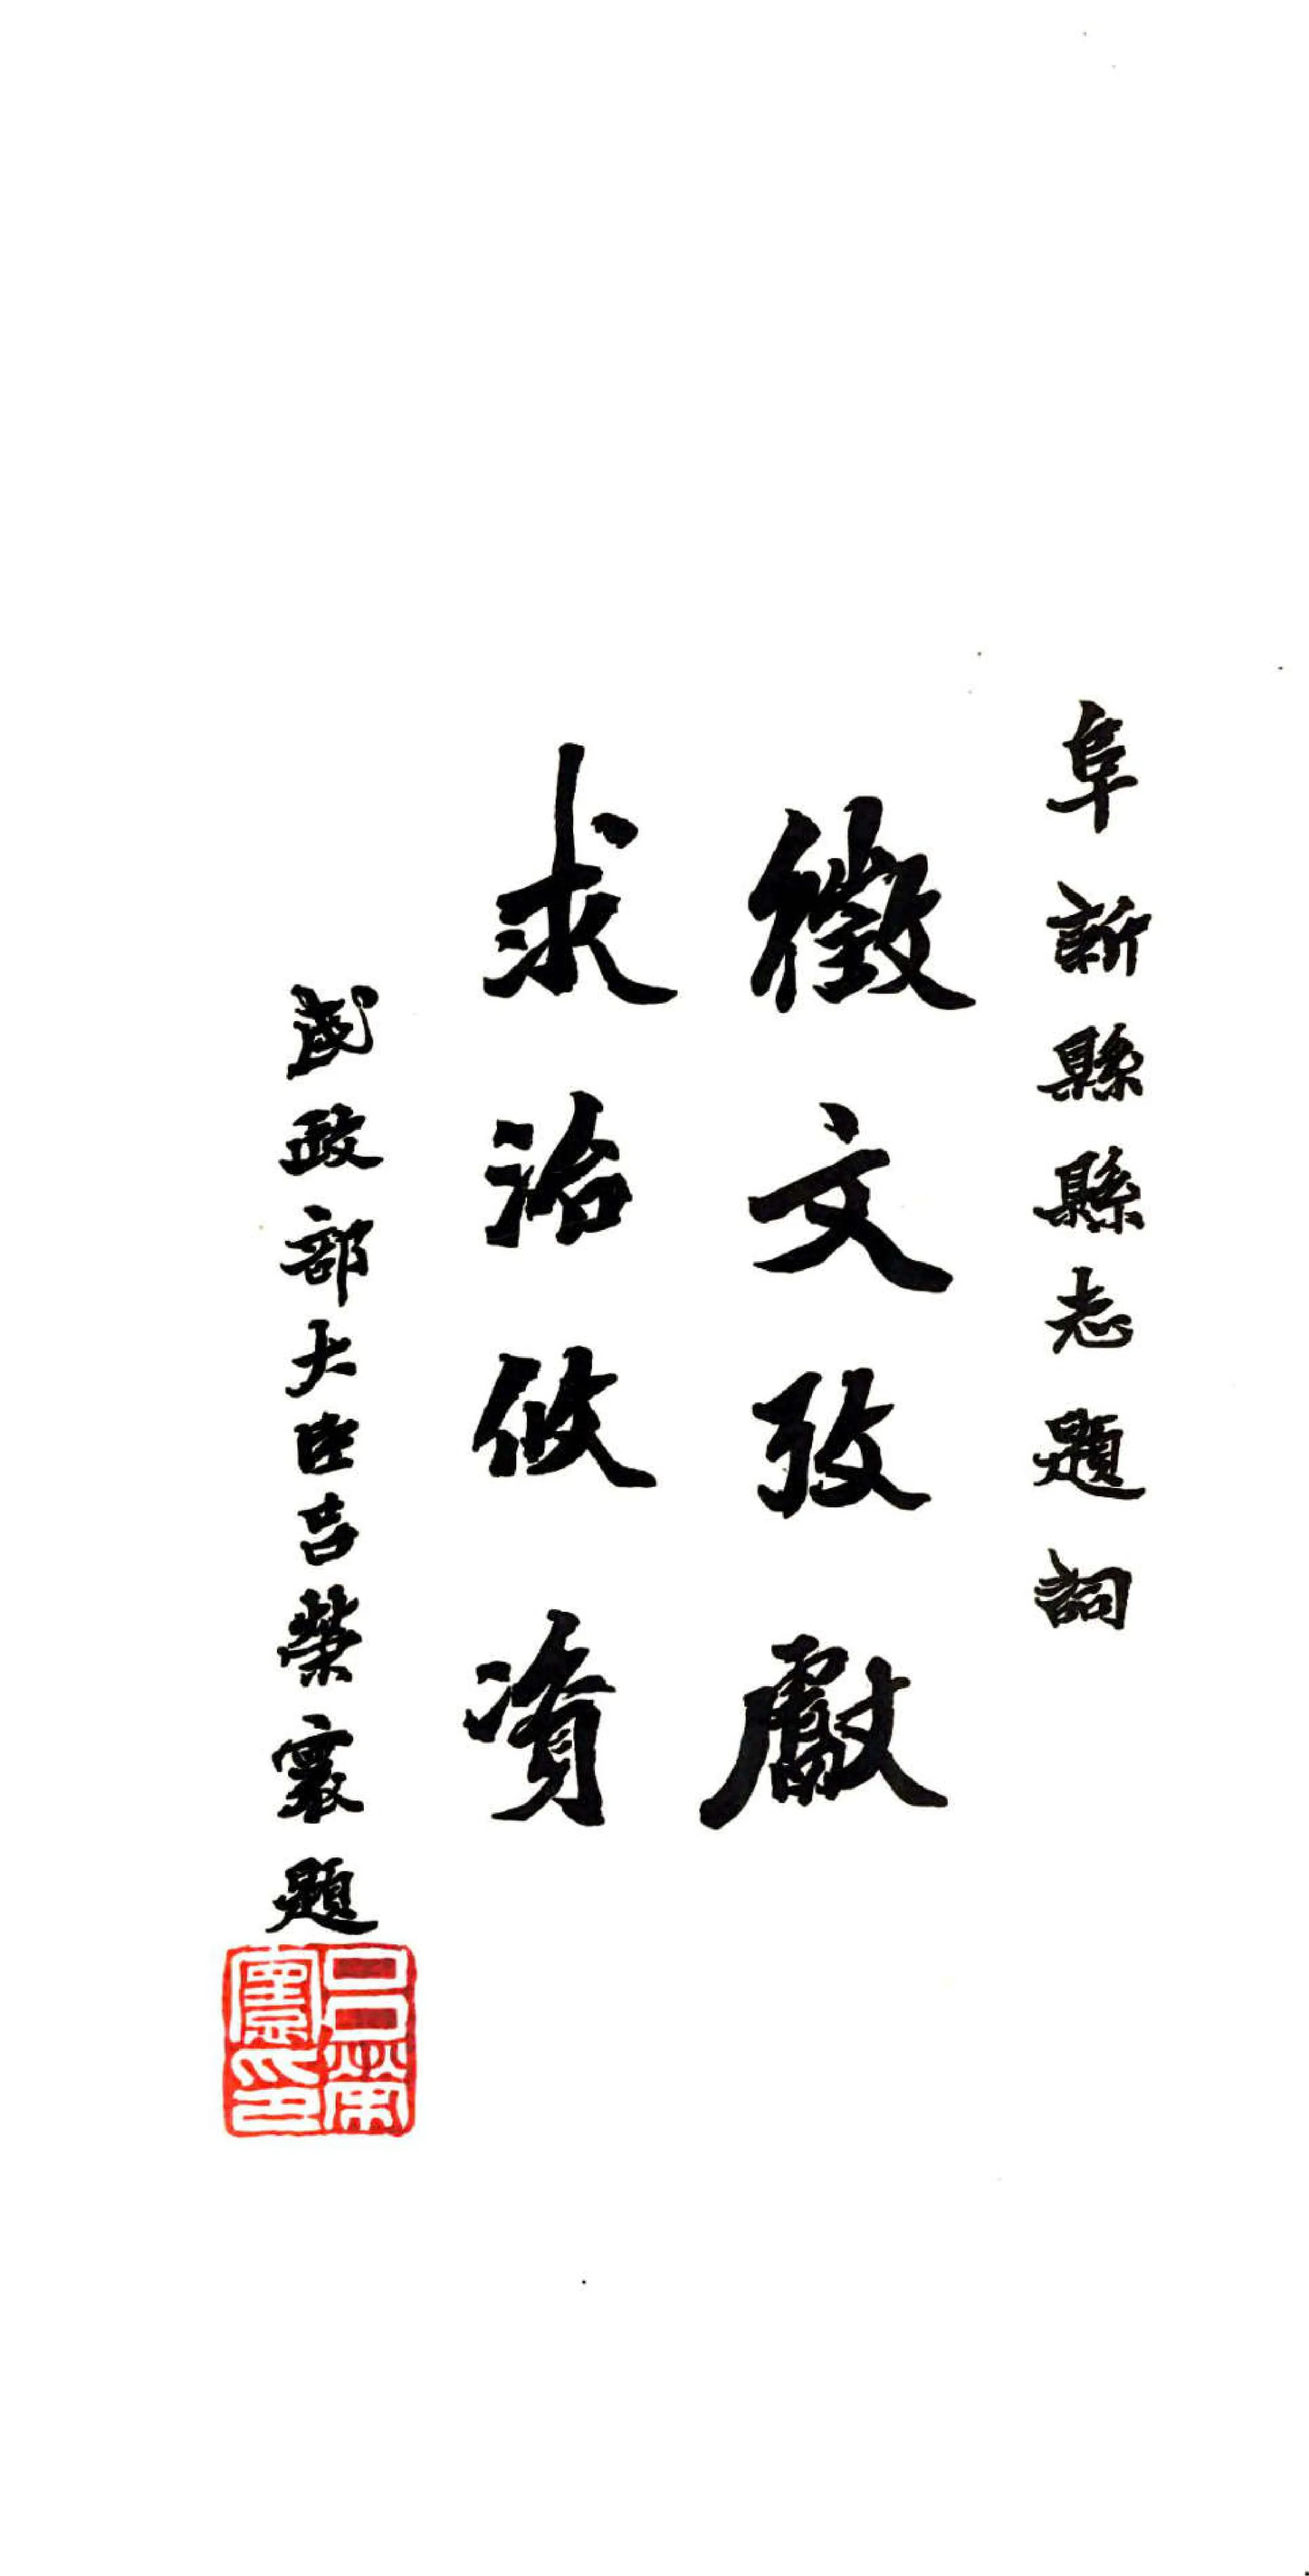 阜新縣縣志題詞
徵文攷獻
求治攸資
民政部大臣呂榮寰題
呂榮寰印